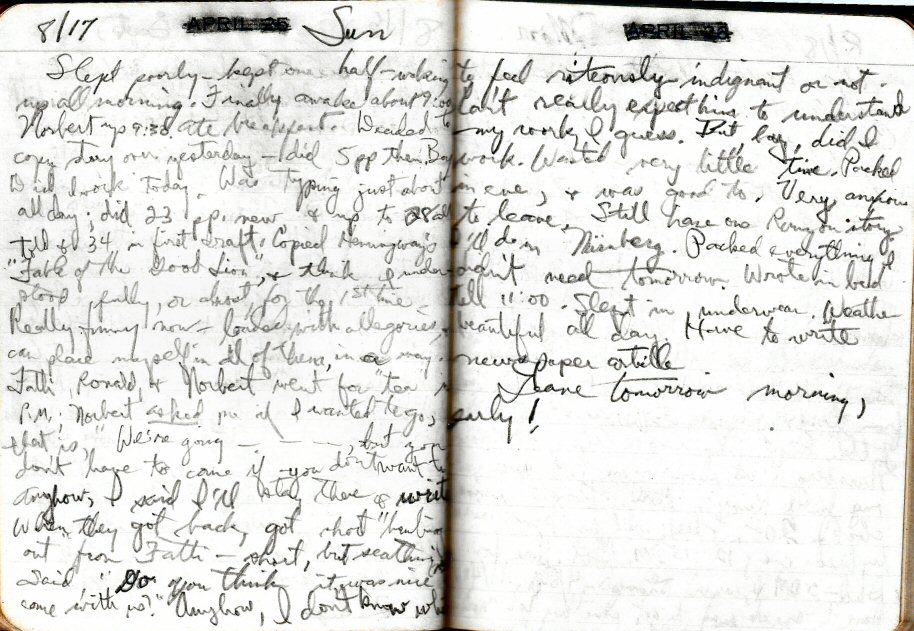 8/17 APRIL 25 Sun
Slept poorly - kept one half-waking
up all morning. Finally awake about 9:00
Norbert up 9:30 ate breakfast. Decided to
copy over yesterday - did 5 pp then.
Did I work today. Was typing just about
all day; did 23 pp. new & up to 28
34 in first draft. Copied Hemingway's
"Fable of the Good Lion", & think I under-
stood fully, or almost, for the 1st time.
Really funny now - loaded with allegories,
can place myself in all of them, in a way.
Fatti, Ronald, & Norbert went for "tea
P.M.; Norbert asked me if I wanted to go,
that is, "We're going - - - -, but you
don't have to come if you don't want to
anyhow, I said I'll stay there & write
When they got back, got short
out from Fatti - short, but scathing
said "Do you think it was nice
come with us?" Anyhow, I don't know
APRIL 26
to feel riteously indignant or not.
Can't really expect him to understand
- my work, I guess. But, boy, did I
work. Wanted very little time. Packed
in eve, & was good to. Very anxious
to leave. Still have one story
I'll do in Nürnberg. Packed everything I
didn't need tomorrow. Wrote in bed
till 11:00. Slept in underwear. Weather
beautiful all day. Have to write
newspaper article
Leave tomorrow morning,
early!